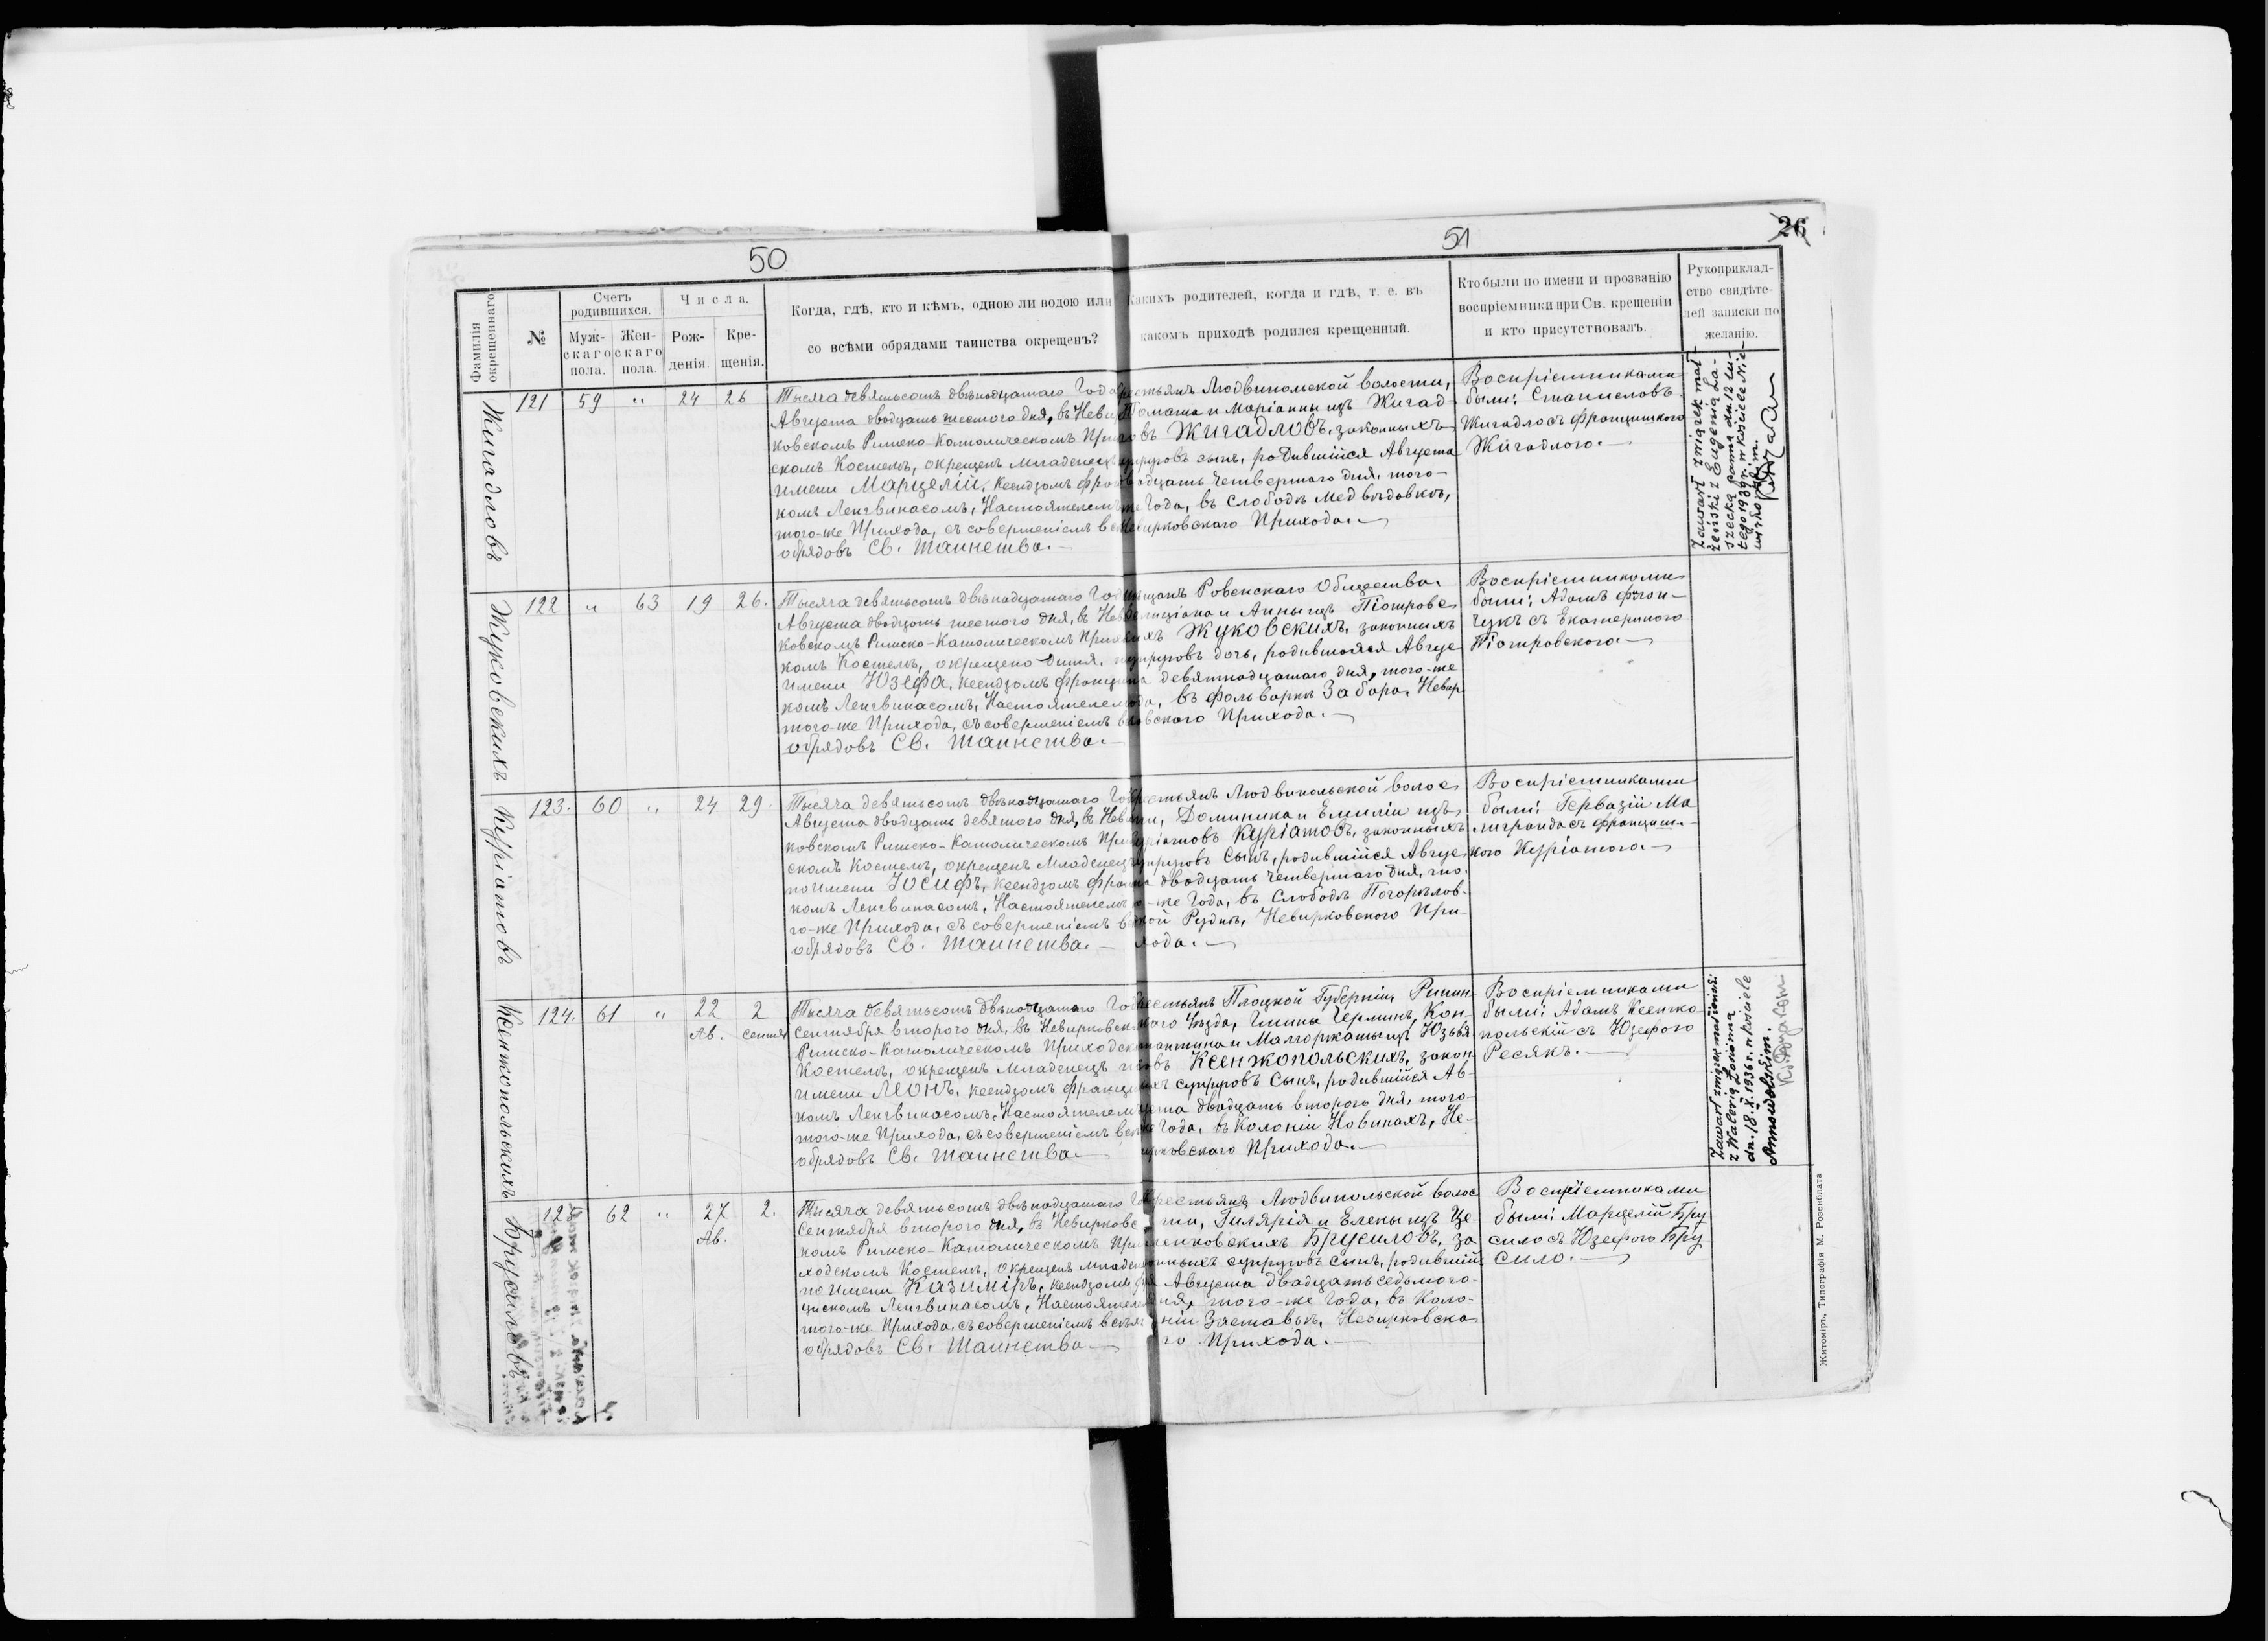 50
51
26
Фамилія окрещеннаго
№
Счетъ родившихся.
Муж- скаго пола.
Жен- скаго пола.
Числа.
Рож- денія.
Кре- щенія.
Когда, гдѣ, кто и кѣмъ, одною ли водою или
со всѣми обрядами таинства окрещенъ?
Какихъ родителей, когда и гдѣ, т. е. въ
какомъ приходѣ родился крещенный.
Кто были по имени и прозванію
воспріемники при Св. крещеніи
и кто присутствовалъ.
Рукоприклад-
ство свидѣте-
лей записки по
желанію.
Жигадловъ
121 59 " 24 26
Тысяча девятьсотъ двѣнадцатаго Года
Августа двадцать шестого дня, въ Невир
ковскомъ Римско-Католическомъ Приход
скомъ Костелѣ, окрещенъ младенецъ
имени Марцелій, ксендзомъ Францис
комъ Ленгвинасомъ, Настоятелемъ
того-же Прихода, съ совершеніемъ всѣхъ
обрядовъ Св. Таинства.—
крестьянъ Людвипольской волости,
Томаша и Маріанны изъ Жигад-
ловъ Жигадловъ, законныхъ
супруговъ сынъ, родившійся Августа
двадцать четвертаго дня, того-
же Года, въ Слободѣ Медвѣдовкѣ,
Невирковскаго Прихода.—
Воспріемниками
были: Станиславъ
Жигадло съ Францишкою
Жигадлою.—
Zawarł związek mał-
żeński z Eugenią Ła-
szecką panną dn. 12 lu-
tego 1939 r. w kościele Nie-
wirkowskim.
Жуковскихъ
122 " 63 19 26.
Тысяча девятьсотъ двѣнадцатаго Года
Августа двадцать шестого дня, въ Невир
ковскомъ Римско-Католическомъ Приходс
комъ Костелѣ, окрещено дитя,
имени Юзефа, ксендзомъ Францис
комъ Ленгвинасомъ, Настоятелемъ
того-же Прихода, съ совершеніемъ всѣхъ
обрядовъ Св. Таинства.—
мѣщанъ Ровенскаго Общества,
Фелиціана и Анны изъ Піотровс
кихъ Жуковскихъ, законныхъ
супруговъ дочь, родившаяся Авгус
та девятнадцатаго дня, того-же
Года, въ фольваркѣ Забара, Невир
ковскаго Прихода.—
Воспріемниками
были: Адамъ Фран-
чукъ съ Екатериною
Піотровскою.—
Куріатовъ
123. 60 " 24 29.
Тысяча девятьсотъ двѣнадцатаго Года
Августа двадцать девятого дня, въ Невир
ковскомъ Римско-Католическомъ Приход
скомъ Костелѣ, окрещенъ Младенецъ
по имени Іосифъ, ксендзомъ Францис
комъ Ленгвинасомъ, Настоятелемъ то
го-же Прихода, съ совершеніемъ всѣхъ
обрядовъ Св. Таинства.—
крестьянъ Людвипольской волос
ти, Доминика и Емиліи изъ
Куріатовъ Куріатовъ, законныхъ
супруговъ Сынъ, родившійся Авгус
та двадцать четвертаго дня, то
го-же Года, въ Слободѣ Погорѣлов-
ской Руднѣ, Невирковскаго При-
хода.—
Воспріемниками
были: Гервазій Ма
лигранда съ Францишк-
кою Куріатою.—
Ксенжопольскихъ
124. 61 " 22 Ав. 2 Сентяб
Тысяча девятьсотъ двѣнадцатаго Года
Сентября второго дня, въ Невирковском
Римско-Католическомъ Приходскомъ
Костелѣ, окрещенъ Младенецъ по
имени Леонъ, ксендзомъ Францис
комъ Ленгвинасомъ, Настоятелемъ
того-же Прихода, съ совершеніемъ всѣхъ
обрядовъ Св. Таинства.—
крестьянъ Плоцкой Губерніи, Рипин-
скаго Уѣзда, Гмины Черминъ, Кон-
стантина и Малгоржаты изъ Юзвя
ковъ Ксенжопольскихъ, закон-
ныхъ супруговъ Сынъ, родившійся Ав-
густа двадцать второго дня, того-
же Года, въ Колоніи Новинахъ, Не-
вирковскаго Прихода.—
Воспріемниками
были: Адамъ Ксенжо
польскій съ Юзефою
Ресякъ.—
Zawarł związek małżeński
z Walerią Zosionną
dn. 18.X.1936 r. w kościele
Annowolskim.
Брусиловъ
125. 62 " 27 Ав. 2.
Тысяча девятьсотъ двѣнадцатаго Года
Сентября второго дня, въ Невирковс
комъ Римско-Католическомъ При
ходскомъ Костелѣ, окрещенъ младенецъ
по имени Казиміръ, ксендзомъ Фран
цискомъ Ленгвинасомъ, Настоятелемъ
того-же Прихода, съ совершеніемъ всѣхъ
обрядовъ Св. Таинства.—
крестьянъ Людвипольской волос
ти, Гилярія и Елены изъ Це-
ленковскихъ Брусиловъ, за
конныхъ супруговъ сынъ, родившій
ся Августа двадцать седьмого
дня, того-же Года, въ Коло-
ніи Заставьѣ, Невирковска
го Прихода.—
Воспріемниками
были: Марцелій Бру
сило съ Юзефою Бру
сило.—
Житоміръ, Типографія М. Розенблата